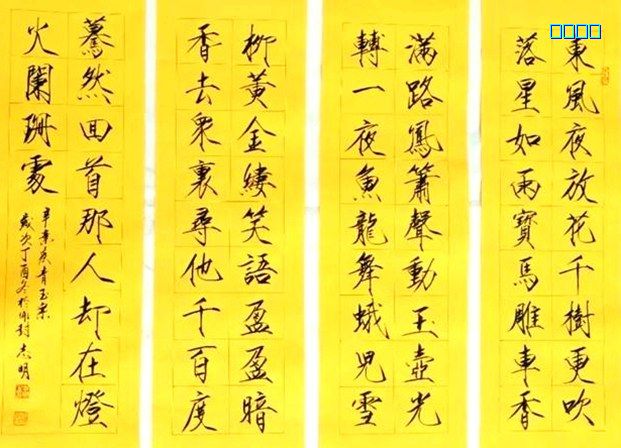 東風夜放花千樹更吹
落星如雨寶馬雕車香
滿路鳳簫聲動玉壺光
轉一夜魚龍舞蛾兒雪
柳黃金縷笑語盈盈暗
香去衆裏尋他千百度
驀然回首那人却在燈
火闌珊處
辛棄疾青玉案
歲次丁酉冬於封志明